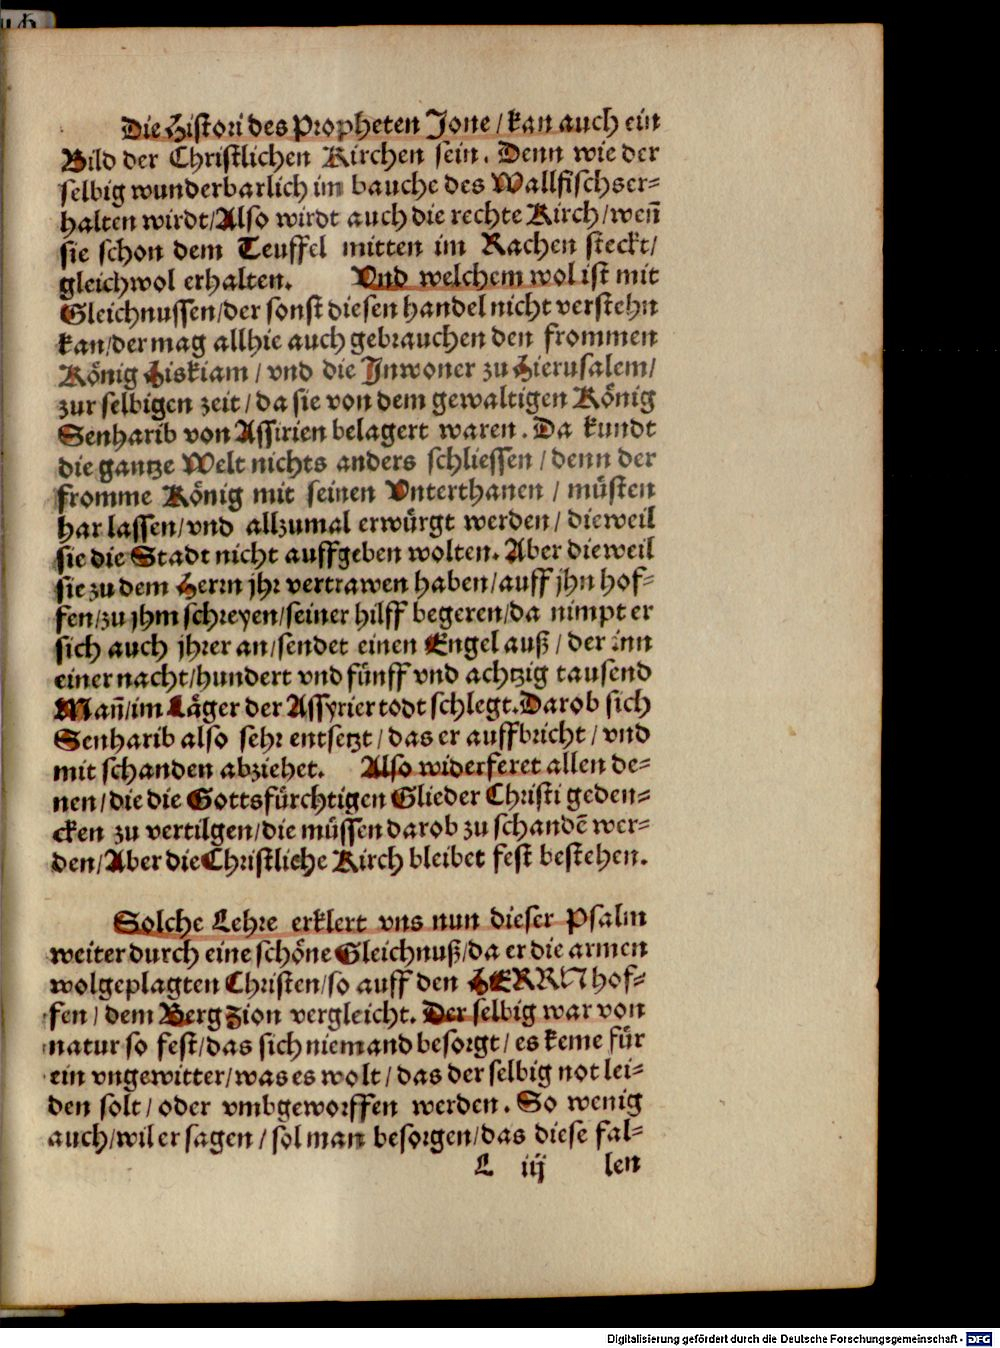 Die Histori des Propheten Jone / kan auch ein
Bild der Christlichen Kirchen sein. Denn wie der
selbig wunderbarlich im bauche des Wallfischs er=
halten wirdt / Also wirdt auch die rechte Kirch / weñ
sie schon dem Teuffel mitten im Rachen steckt /
gleichwol erhalten. Vnd welchem wol ist mit
Gleichnussen / der sonst diesen handel nicht verstehn
kan / der mag allhie auch gebrauchen den frommen
König Hiskiam / vnd die Jnwoner zu Hierusalem /
zur selbigen zeit / da sie von dem gewaltigen König
Senharib von Assirien belagert waren. Da kundt
die gantze Welt nichts anders schliessen / denn der
fromme König mit seinen Vnterthanen / müsten
har lassen / vnd allzumal erwürgt werden / dieweil
sie die Stadt nicht auffgeben wolten. Aber dieweil
sie zu dem Herrn jhr vertrawen haben / auff jhn hof=
fen / zu jhm schreyen / seiner hilff begeren / da nimpt er
sich auch jhrer an / sendet einen Engel auß / der inn
einer nacht / hundert vnd fünff vnd achtzig tausend
Mañ / im Läger der Assyrier todt schlegt. Darob sich
Senharib also sehr entsetzt / das er auffbricht / vnd
mit schanden abziehet. Also widerferet allen de=
nen / die die Gottsfürchtigen Glieder Christi geden=
cken zu vertilgen / die müssen darob zu schandẽ wer=
den / Aber die Christliche Kirch bleibet fest bestehen.
Solche Lehre erklert vns nun dieser Psalm
weiter durch eine schöne Gleichnuß / da er die armen
wolgeplagten Christen / so auff den HERRN hof=
fen / dem Berg Zion vergleicht. Der selbig war von
natur so fest / das sich niemand besorgt / es keme für
ein vngewitter / was es wolt / das der selbig not lei=
den solt / oder vmbgeworffen werden. So wenig
auch / wil er sagen / sol man besorgen / das diese fal=
L iij len
Digitalisierung gefördert durch die Deutsche Forschungsgemeinschaft - DFG